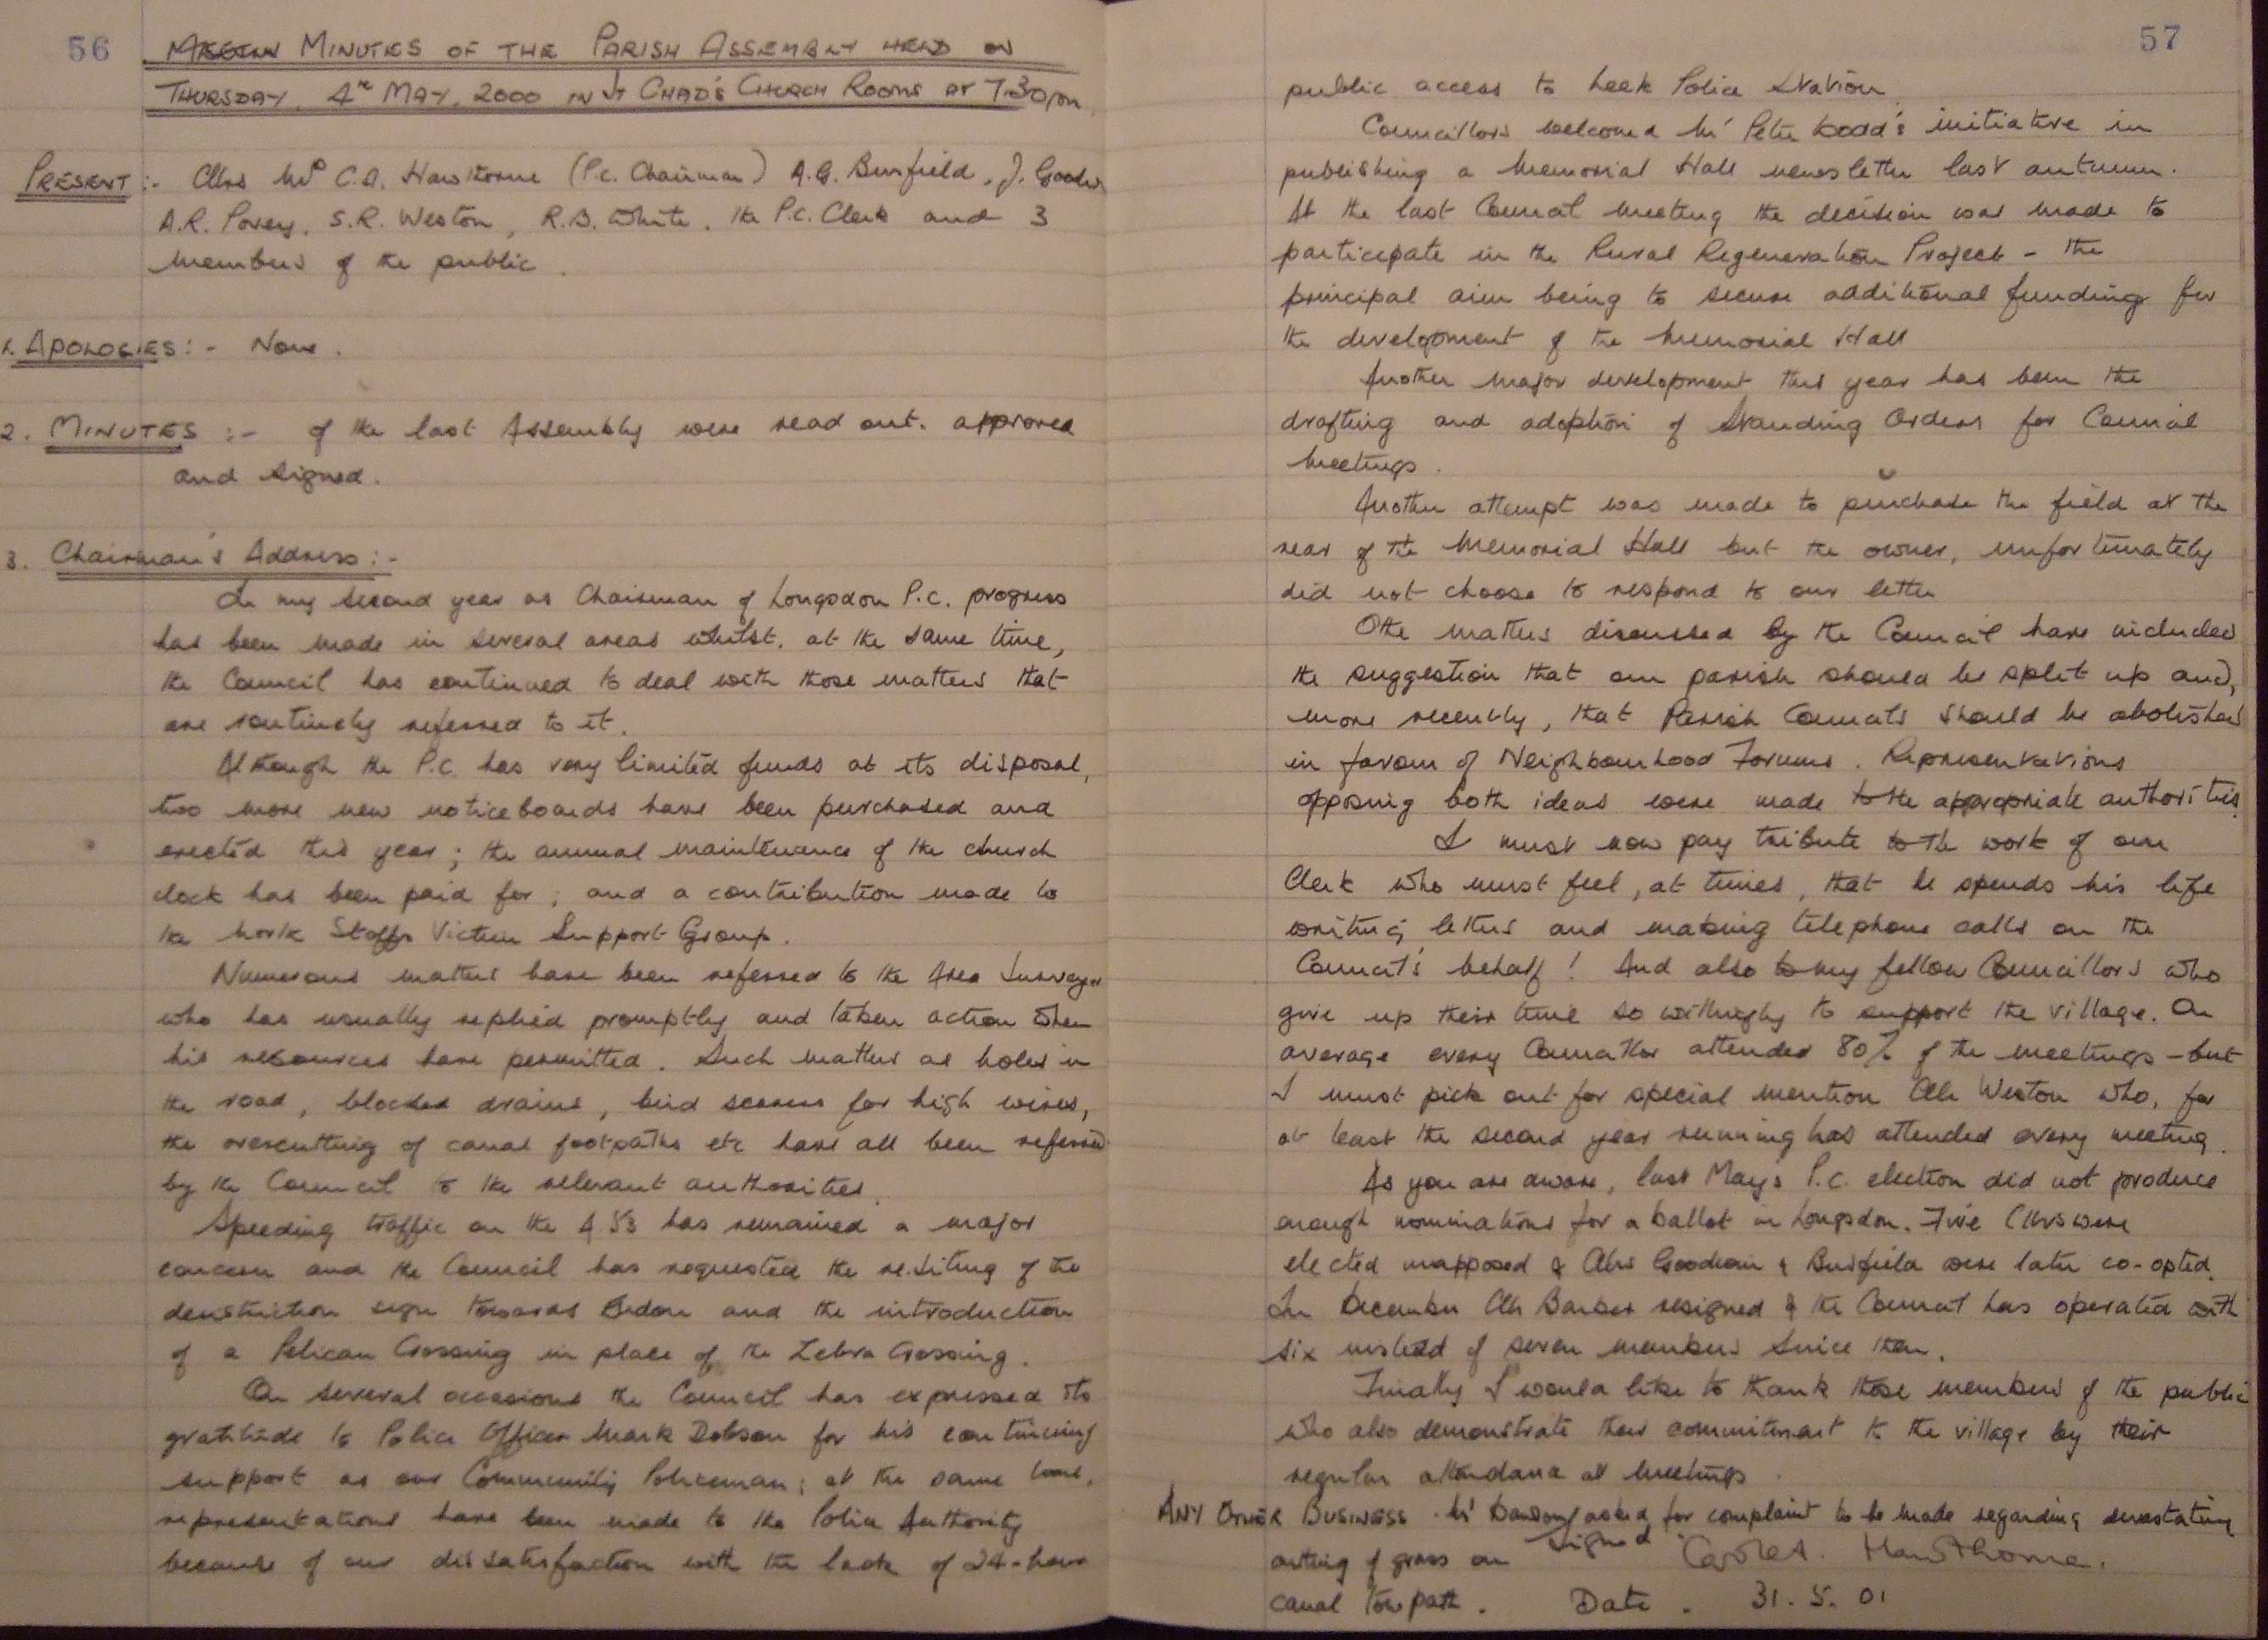 56
MINUTES OF THE PARISH ASSEMBLY HELD ON
THURSDAY, 4TH MAY, 2000 IN ST CHAD'S CHURCH ROOMS AT 7.30pm
PRESENT :- Cllrs Mrs C.A. Hawthorne (P.C. Chairman) A.G. Busfield, J. Goodwin
A.R. Povey, S.R. Weston, R.B. White, the P.C. Clerk and 3
members of the public.
1. APOLOGIES :- None.
2. MINUTES :- of the last Assembly were read out, approved
and signed.
3. Chairman's Address :-
In my second year as Chairman of Longsdon P.C. progress
has been made in several areas whilst, at the same time,
the Council has continued to deal with those matters that
are routinely referred to it.
Although the P.C. has very limited funds at its disposal,
two more new noticeboards have been purchased and
erected this year; the annual maintenance of the church
clock has been paid for; and a contribution made to
the North Staffs Victim Support Group.
Numerous matters have been referred to the Area Surveyor
who has usually replied promptly and taken action when
his resources have permitted. Such matters as holes in
the road, blocked drains, bird scarers for high wires,
the overcutting of canal footpaths etc have all been referred
by the Council to the relevant authorities.
Speeding traffic on the A53 has remained a major
concern and the Council has requested the re-siting of the
derestriction sign towards Endon and the introduction
of a Pelican Crossing in place of the Zebra Crossing.
On several occasions the Council has expressed its
gratitude to Police Officer Mark Dobson for his continuing
support as our Community Policeman; at the same time,
representations have been made to the Police Authority
because of our dissatisfaction with the lack of 24-hour
57
public access to Leek Police Station.
Councillors welcomed Mr Peter Dodd's initiative in
publishing a Memorial Hall newsletter last autumn.
At the last Council meeting the decision was made to
participate in the Rural Regeneration Project - the
principal aim being to secure additional funding for
the development of the Memorial Hall
Another major development this year has been the
drafting and adoption of Standing Orders for Council
meetings.
Another attempt was made to purchase the field at the
rear of the Memorial Hall but the owner, unfortunately
did not choose to respond to our letter
Other matters discussed by the Council have included
the suggestion that our parish should be split up and,
more recently, that Parish Councils should be abolished
in favour of Neighbourhood Forums. Representations
opposing both ideas were made to the appropriate authorities.
I must now pay tribute to the work of our
Clerk who must feel, at times, that he spends his life
writing letters and making telephone calls on the
Council's behalf! And also to my fellow Councillors who
give up their time so willingly to support the village. On
average every Councillor attended 80% of the meetings - but
I must pick out for special mention Cllr Weston who, for
at least the second year running has attended every meeting.
As you are aware, last May's P.C. election did not produce
enough nominations for a ballot in Longsdon. Five Cllrs were
elected unopposed & Cllrs Goodwin & Busfield were later co-opted.
In December Cllr Barber resigned & the Council has operated with
six instead of seven members since then.
Finally I would like to thank those members of the public
who also demonstrate their commitment to the village by their
regular attendance at meetings.
ANY OTHER BUSINESS - Mr asked for complaint to be made regarding devastating
cutting of grass on Signed Carole A. Hawthorne.
canal tow path. Date. 31.5.01